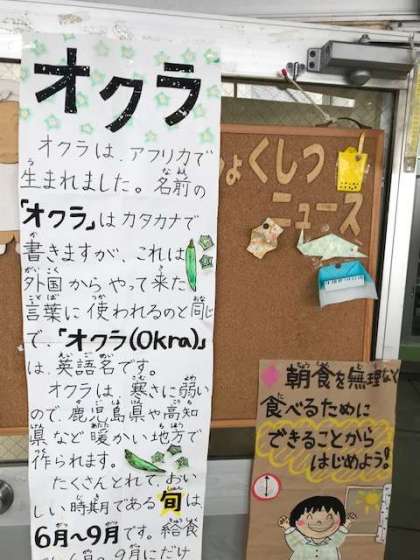 オクラ
オクラは、アフリカで
生まれました。名前の
「オクラ」はカタカナで
書きますが、これは
外国からやって来た
言葉に使われるのと同じ
で、「オクラ(Okra)」
は、英語名です。
オクラは、寒さに弱い
ので、鹿児島県や高知
県など暖かい地方で
作られます。
たくさんとれて、おい
しい時期である旬は、
6月〜9月です。給食
9月にだけ
くしつ
ニュース
朝食を無理なく
食べるために
できることから
はじめよう!